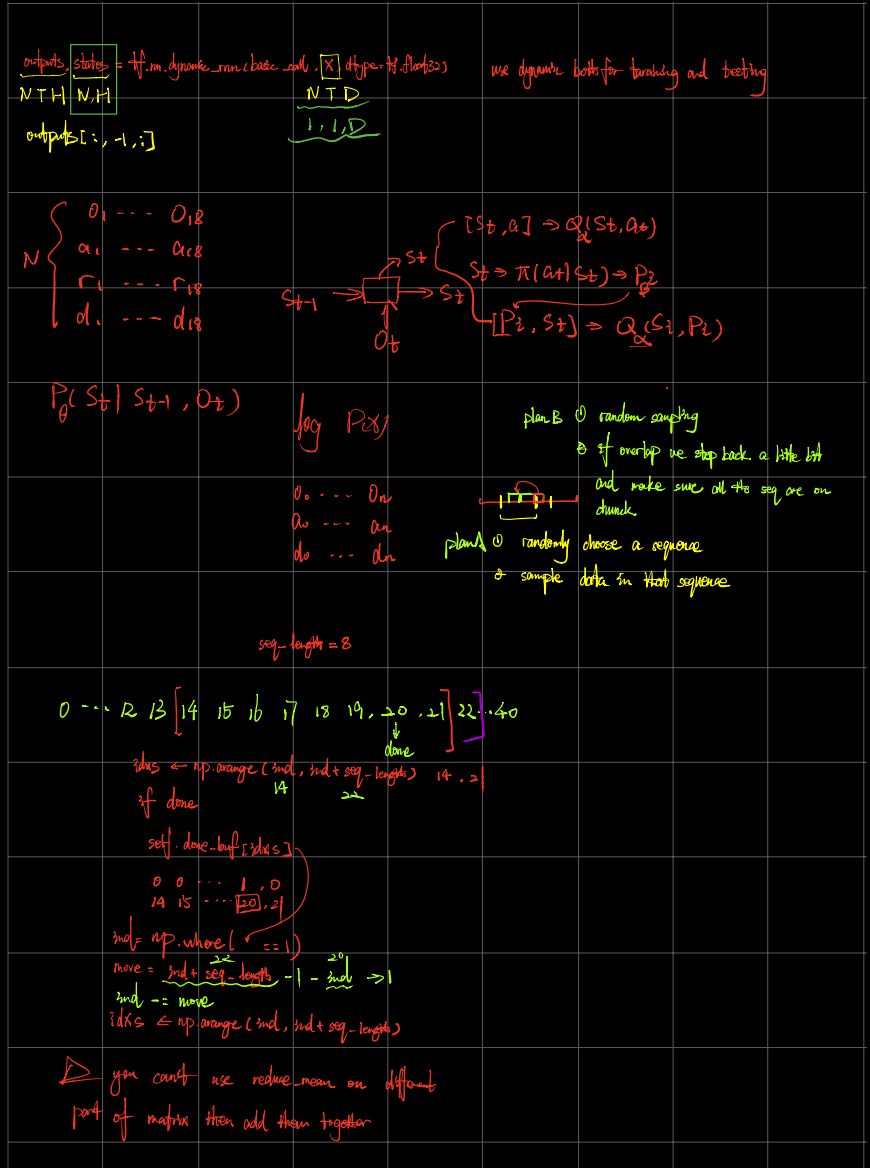 outputs, states = tf.nn.dynamic_rnn(basic_cell, X, dtype=tf.float32) use dynamic both for training and testing
N T H N,H N T D
1, 1, D
outputs[:, -1, :]
N { O1 --- O18
a1 --- a18
r1 --- r18
d1 --- d18
[St, a] ⇒ Qα(St, at)
St
St ⇒ π(at|St) → P2
St-1 → → St
[Pi, St] ⇒ Qα(Si, Pi)
Ot
Pθ(St | St-1, Ot)
log P(X)
plan B ① random sampling
② if overlap we step back a little bit
and make sure all the seq are on
chunck
O0 --- On
a0 --- an
d0 --- dn
plan A ① randomly choose a sequence
② sample data in that sequence
seq_length = 8
0 --- 12 13 [14 15 16 17 18 19, 20, 21] 22] ..40
↓
done
idxs ← np.arange(ind, ind+seq_length) 14 . 21
14 22
if done
self.done_buf[idxs]
0 0 --- 1, 0
14 15 ---- 20, 21
ind = np.where( ==1)
22 20
move = ind + seq_length - 1 - ind → 1
ind -= move
idxs ← np.arange(ind, ind+seq_length)
▷ you can't use reduce_mean on different
part of matrix then add them together